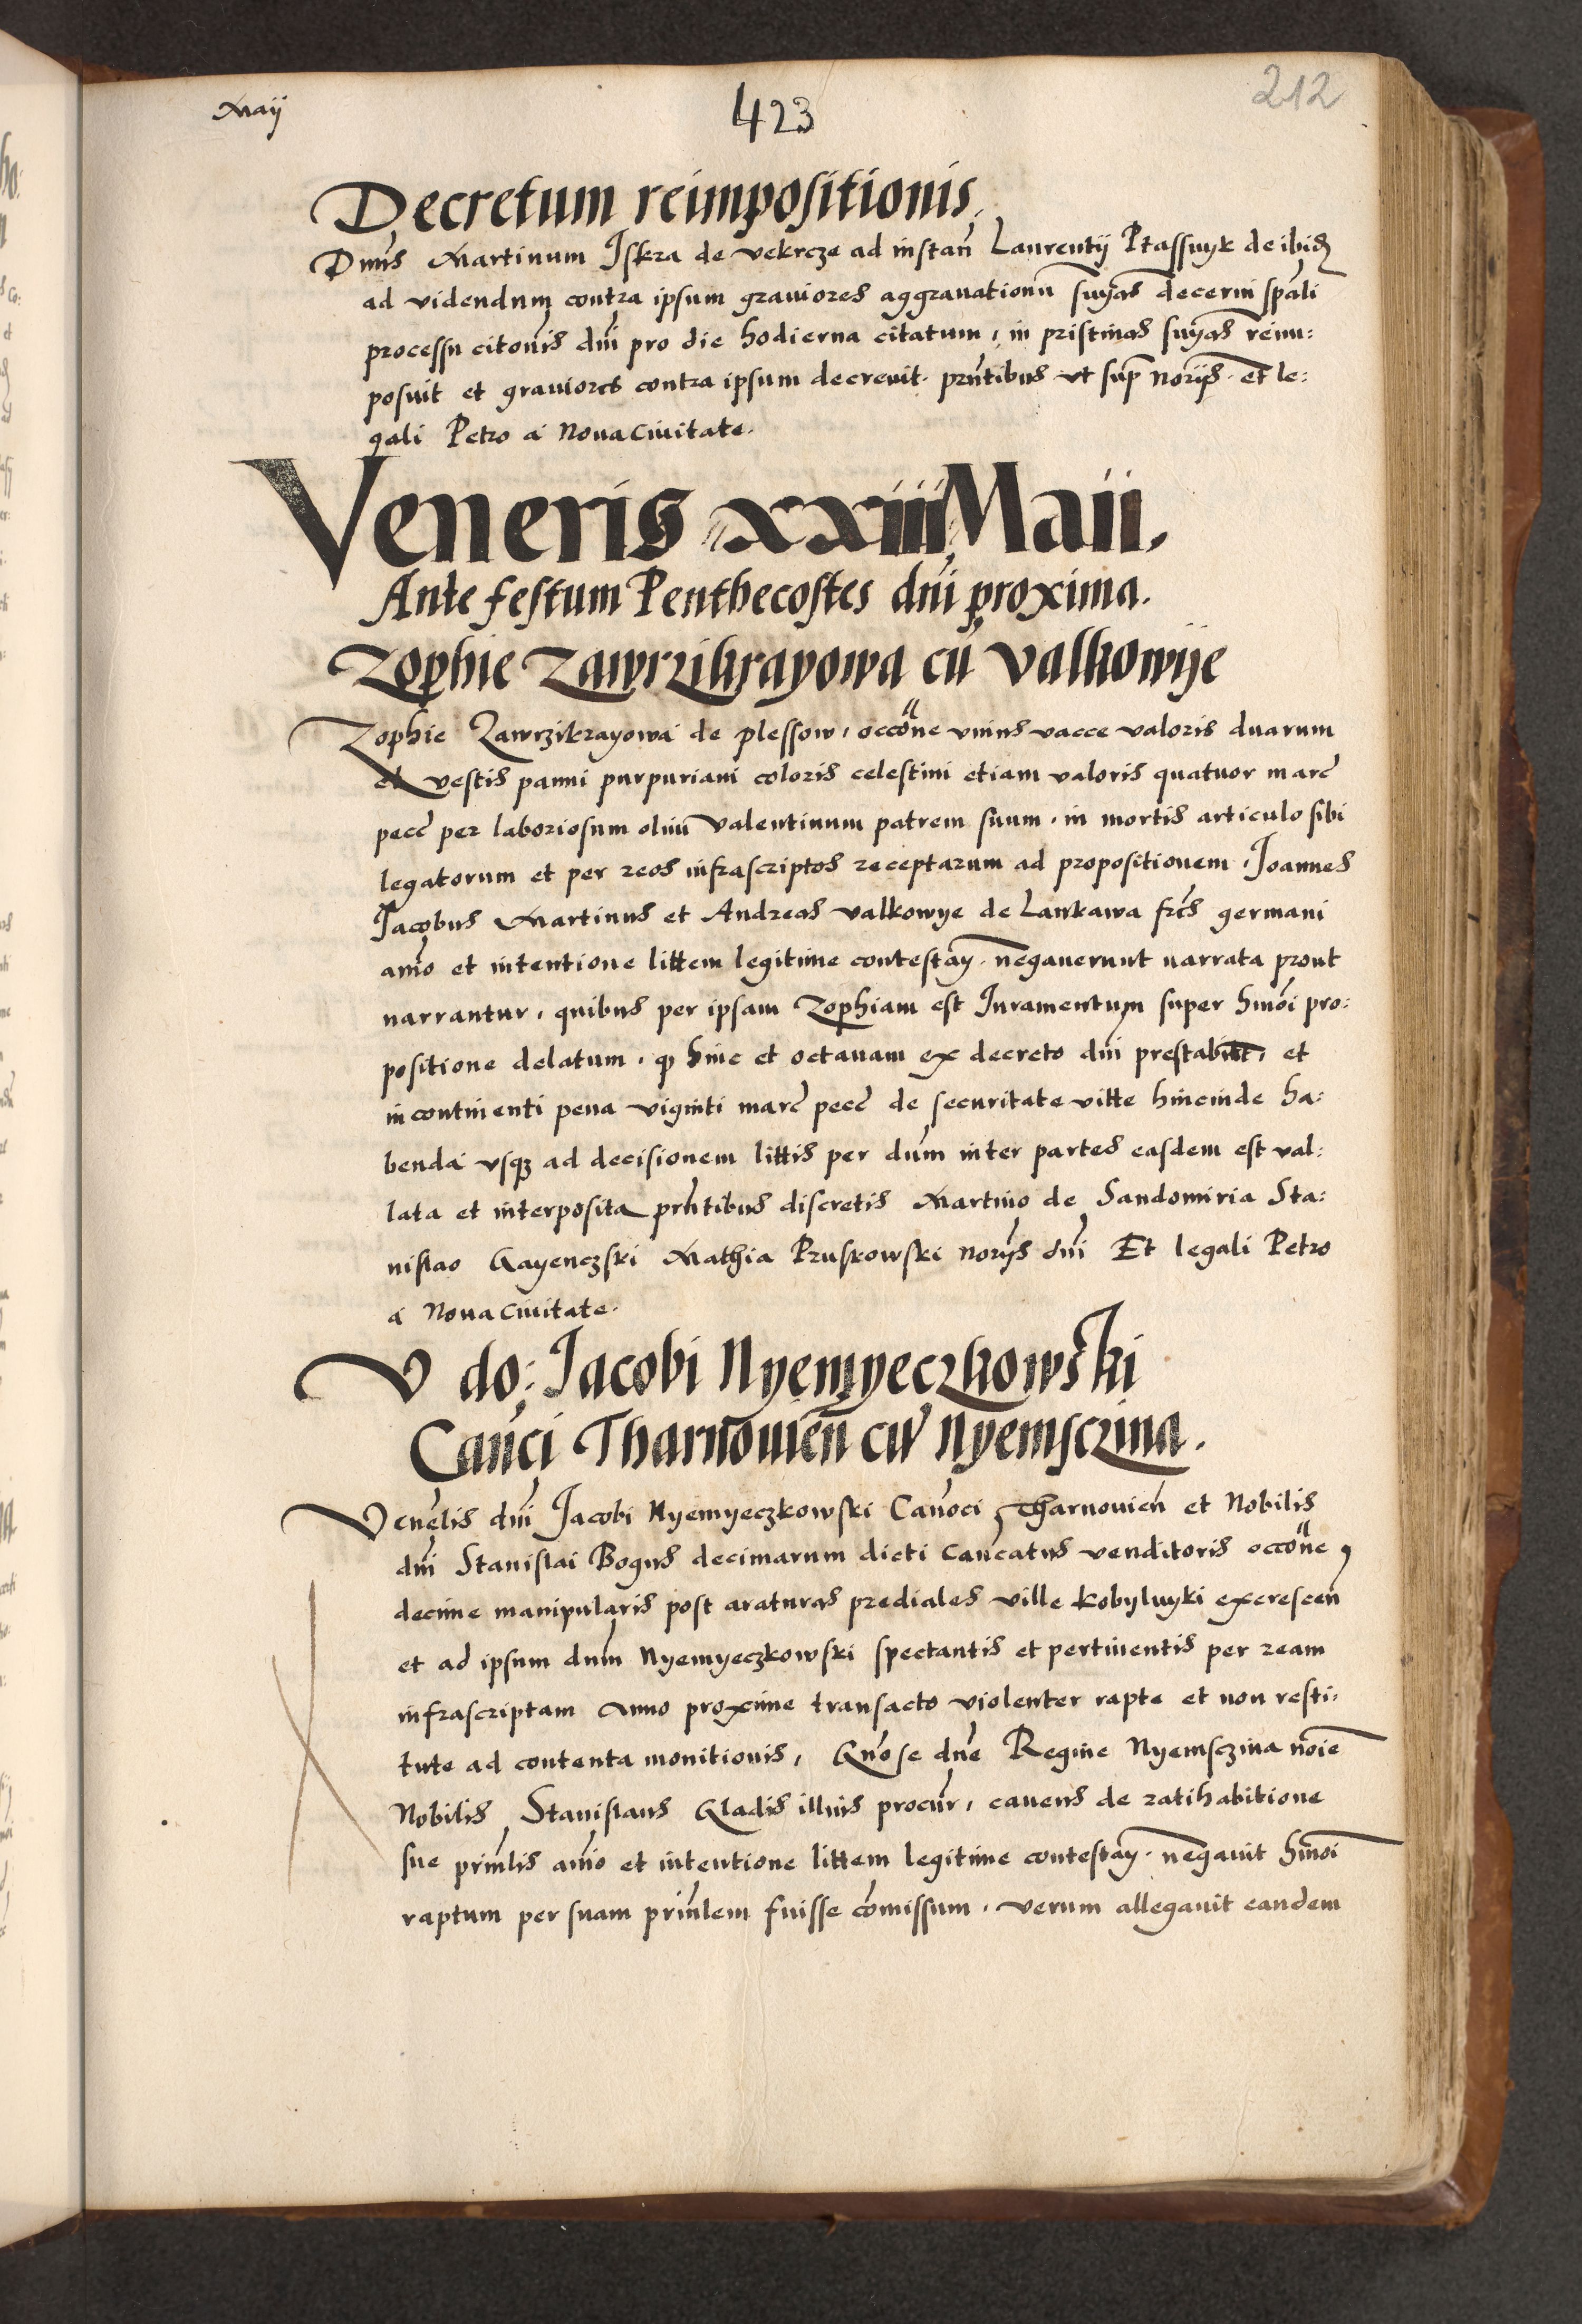 Maij
423
212
Decretum reimpositionis.
Dnus Martinum Iskra de vekrcze ad instan̄ Laurentij Ptassnyk de ibid
ad videndum contra ipsum grauiores aggrauationū snȳas decerni spāli
processu citōnis dnī pro die hodierna citatum, in pristinas snȳas reim:
posuit et grauiores contra ipsum decreuit. prn̄tibus vt sup̄ norijs. et le:
gali Petro á Noua Ciuitate.
Veneris xxiii Maii.
Ante festum Penthecostes dnī proxima.
Zophie Zawrzikrayowa cū Valkowije
Zophie Zawrzikrayowa de plessow, occōne vnius vacce valoris duarum
et vestis panni purpuriani coloris celestini etiam valoris quatuor marc̄
pecc̄ per laboriosum olim̄ Valentinum patrem suum. in mortis articulo sibi
legatorum et per reos infrascriptos receptarum ad propositionem, Joannes
Jacobus Martinus et Andreas valkowye de Lankawa frēs germani
anīo et intentione littem legitime contestan̄. negauerunt narrata prout
narrantur, quibus per ipsam Zophiam est Juramentum super hmōi pro:
positione delatum. q hinc et octauam ex decreto dnī prestabunt, et
in continenti pena viginti marc̄ pecc̄ de securitate vitte hincinde ha:
benda vsq ad decisionem littis per dnm̄ inter partes easdem est val:
lata et interposita prn̄tibus discretis Martino de Sandomiria Sta:
nislao Gayenczski Mathia Pruskowski norijs dnī Et legali Petro
á Noua Ciuitate.
V do: Jacobi Nyemyeczkowski
Can̄ci Tharnouien̄ cū Nyemsczina.
Venēlis dnī Jacobi Nyemyeczkowski Canōci Tharnouien̄ et Nobilis
dnī Stanislai Bogus decimarum dicti Can̄catus venditoris occōne
decime manipularis post araturas prediales ville Kobylnyki excrescen̄
et ad ipsum dnm̄ Nyemyeczkowski spectantis et pertinentis per ream
infrascriptam Anno proxime transacto violenter rapte et non resti,
tute ad contenta monitionis, Gn̄ose dnē Regine Nyemsczina noīe
Nobilis Stanislaus Gladis illius procūr, cauens de ratihabitione
sue prin̄lis anīo et intentione littem legitime contestan̄. negauit hmōi
raptum per suam prin̄lem fuisse cōmissum. verum allegauit eandem